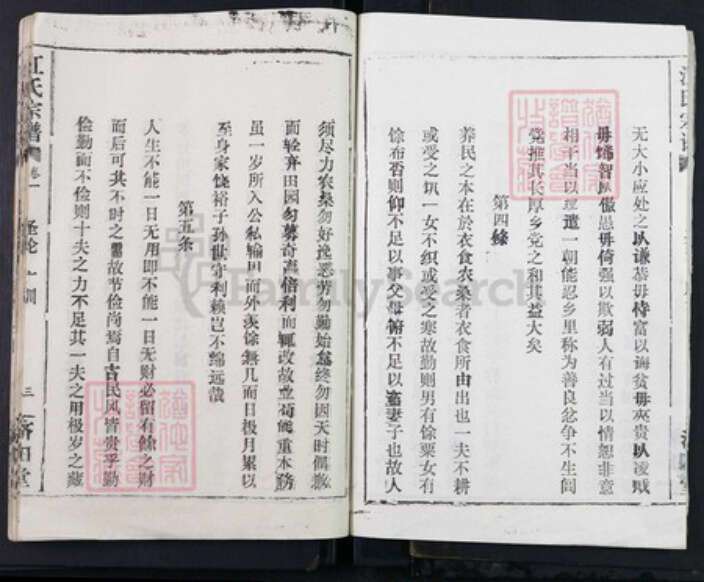 无大小应处之以谦恭毋恃富以诲贫毋夹贵以凌贱
毋饰智以傲愚毋倚强以欺弱人有过当以情恕非意
相干当以理遣一朝能忍乡里称为善良忿争不生闾
党推其长厚乡党之和其益大矣
第四條
养民之本在於衣食农桑者衣食所由出也一夫不耕
或受之饥一女不织或受之寒故勤则男有馀粟女有
馀布否则仰不足以事父母俯不足以畜妻子也故人
须尽力农桑勿好逸恶劳勿勤始怠终勿因天时偶歉
而轻弃田园勿慕奇赢倍利而辄改故业苟能重本务
虽一岁所入公私输因而外羡馀无几而日积月累以
至身家饶裕子孙世守利赖岂不绵远哉
第五条
人生不能一日无用即不能一日无财必留有馀之财
而后可共不时之需故节俭尚焉自古民风皆贵乎勤
俭勤而不俭则十夫之力不足其一夫之用极岁之藏
江氏宗谱
卷一
圣纶
训
三
济阳堂
FamilySearch